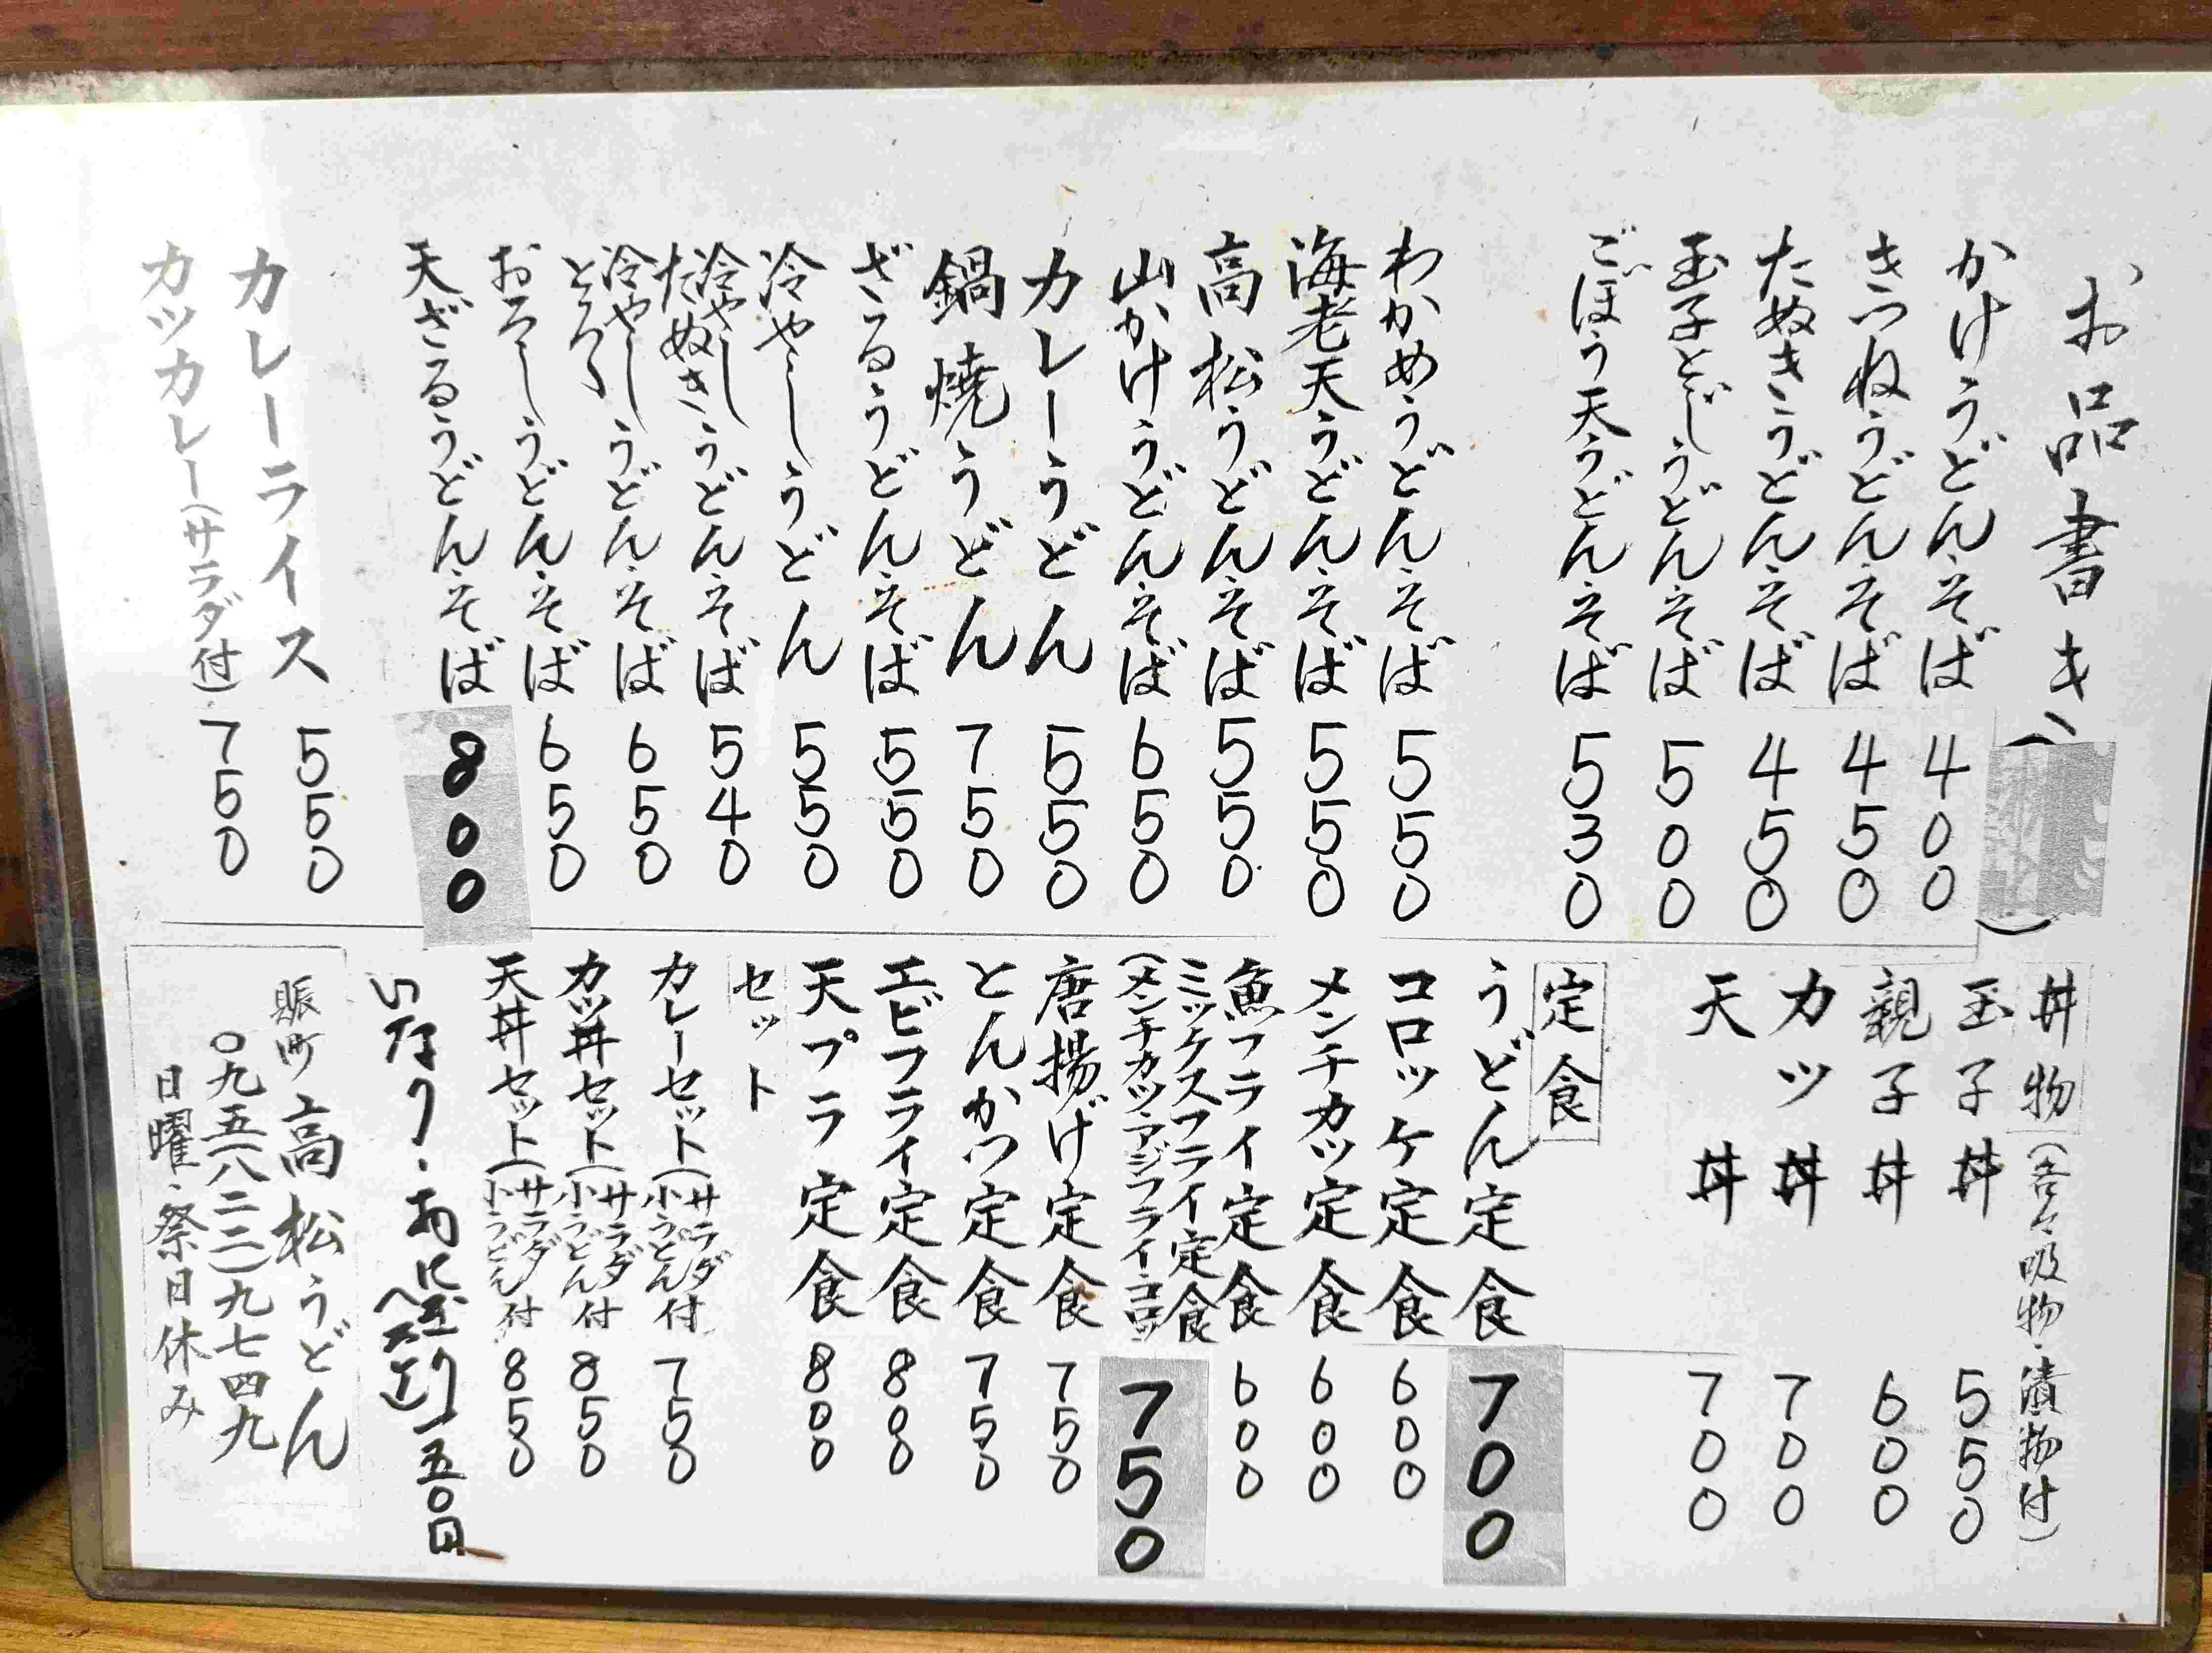 お品書き
かけうどん・そば 400
きつねうどん・そば 450
たぬきうどん・そば 450
玉子とじうどん・そば 500
ごぼう天うどん・そば 530
わかめうどん・そば 550
海老天うどん・そば 550
高松うどん・そば 550
山かけうどん・そば 650
カレーうどん 550
鍋焼うどん 750
ざるうどん・そば 550
冷やしうどん 550
冷やしたぬきうどん・そば 540
冷やしとろろうどん・そば 650
おろしうどん・そば 650
天ざるうどん・そば 800
カレーライス 550
カツカレー(サラダ付) 750
丼物 (吸物・漬物付)
玉子丼 550
親子丼 600
カツ丼 700
天丼 700
定食
うどん定食 700
コロッケ定食 600
メンチカツ定食 600
魚フライ定食 600
ミックスフライ定食
(メンチカツ・アジフライ 750
唐揚げ定食 750
とんかつ定食 750
エビフライ定食 800
天プラ定食 800
セット
カレーセット(サラダ 小うどん付 750
カツ丼セット(サラダ 小うどん付 850
天丼セット(サラダ 小うどん付 850
いなり・おにぎり 一五〇円
賑町 高松うどん
〇九五(八二二)九七四九
日曜・祭日休み